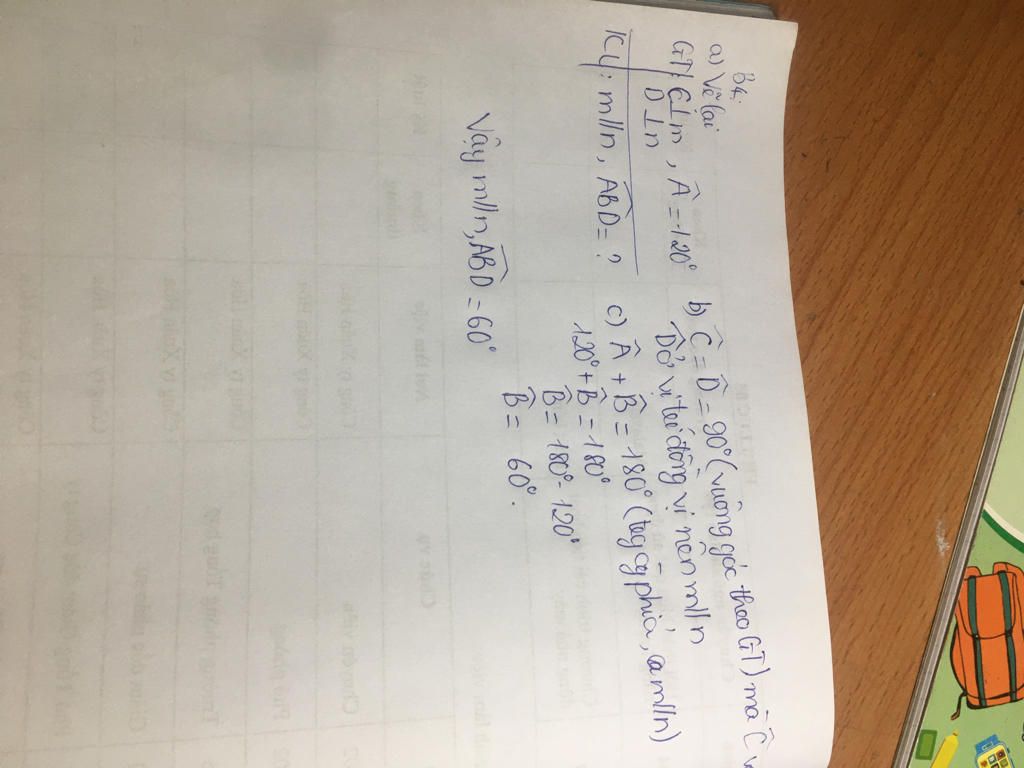 B4.
a) Vẽ lại
GT: C⊥m, Â=120°
D⊥n
KL: m//n, ABD̂= ?
b) Ĉ = D̂ = 90° (vuông góc theo GT) mà Ĉ v
D̂ ở vị trí đồng vị nên m//n
c) Â + B̂ = 180° (
phía, m//n)
120° + B̂ = 180°
B̂ = 180° - 120°
B̂ = 60°.
Vậy m//n, ABD̂ = 60°